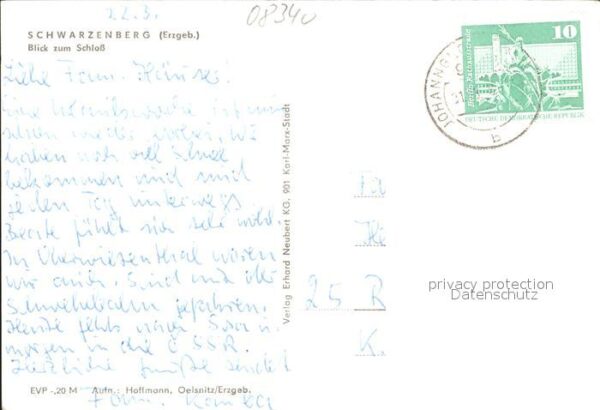 22.3.
08340
SCHWARZENBERG (Erzgeb.)
Blick zum Schloß
10
Berlin, Rathausstraße
DEUTSCHE DEMOKRATISCHE REPUBLIK
JOHANNG
b
Liebe Fam.
Eine ist nun
schon wieder vorbei. Wir
haben noch viel Schnee
bekommen und sind
jeden Tag unterwegs.
Beate fühlt sich sehr wohl.
In Oberwiesenthal waren
wir auch. Sind mit der
Schwebebahn gefahren.
Heute gehts nach u.
morgen in die ČSSR.
Herzliche Grüße sendet
Fam.
Verlag Erhard Neubert KG, 901 Karl-Marx-Stadt
Fa
He
25 R
K.
privacy protection
Datenschutz
EVP -,20 M Aufn.: Hoffmann, Oelsnitz/Erzgeb.